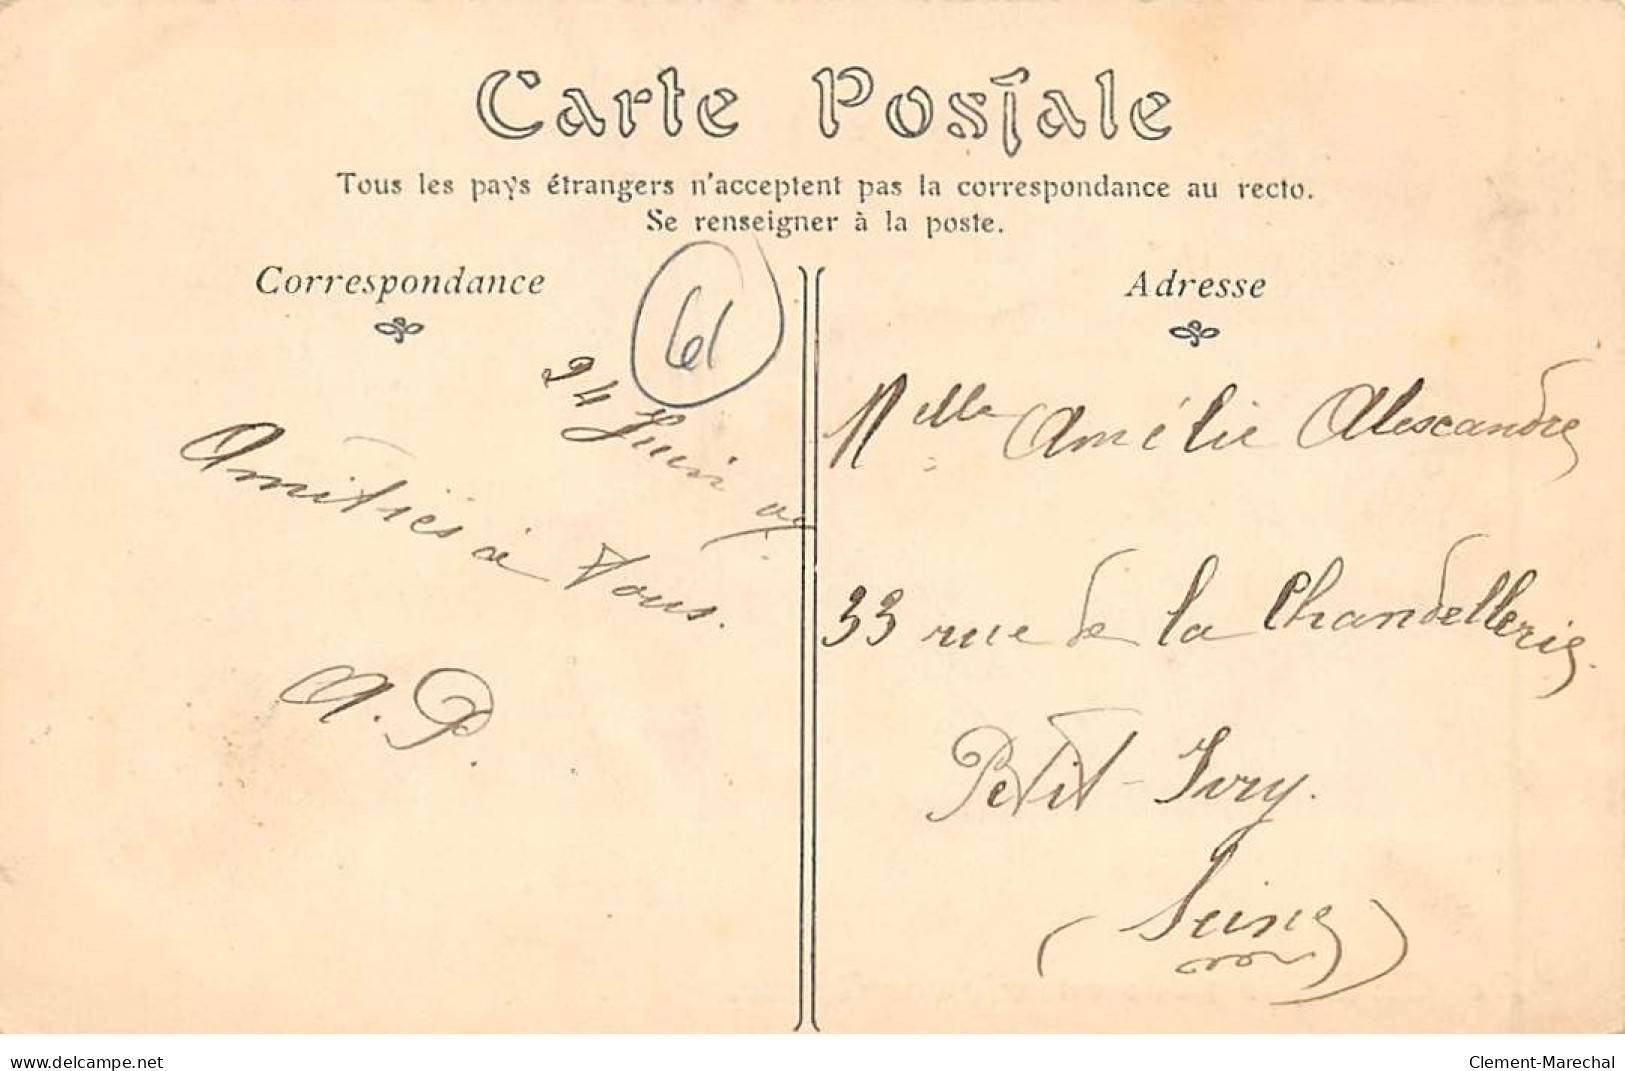 Carte Postale
Tous les pays étrangers n'acceptent pas la correspondance au recto.
Se renseigner à la poste.
Correspondance
61
24 Juin
Amitiés à vous.
A. P.
Adresse
Melle Amélie Alexandre
33 rue de la Chandellerie
Petit-Ivry.
(Seine)
www.delcampe.net
Clement-Marechal